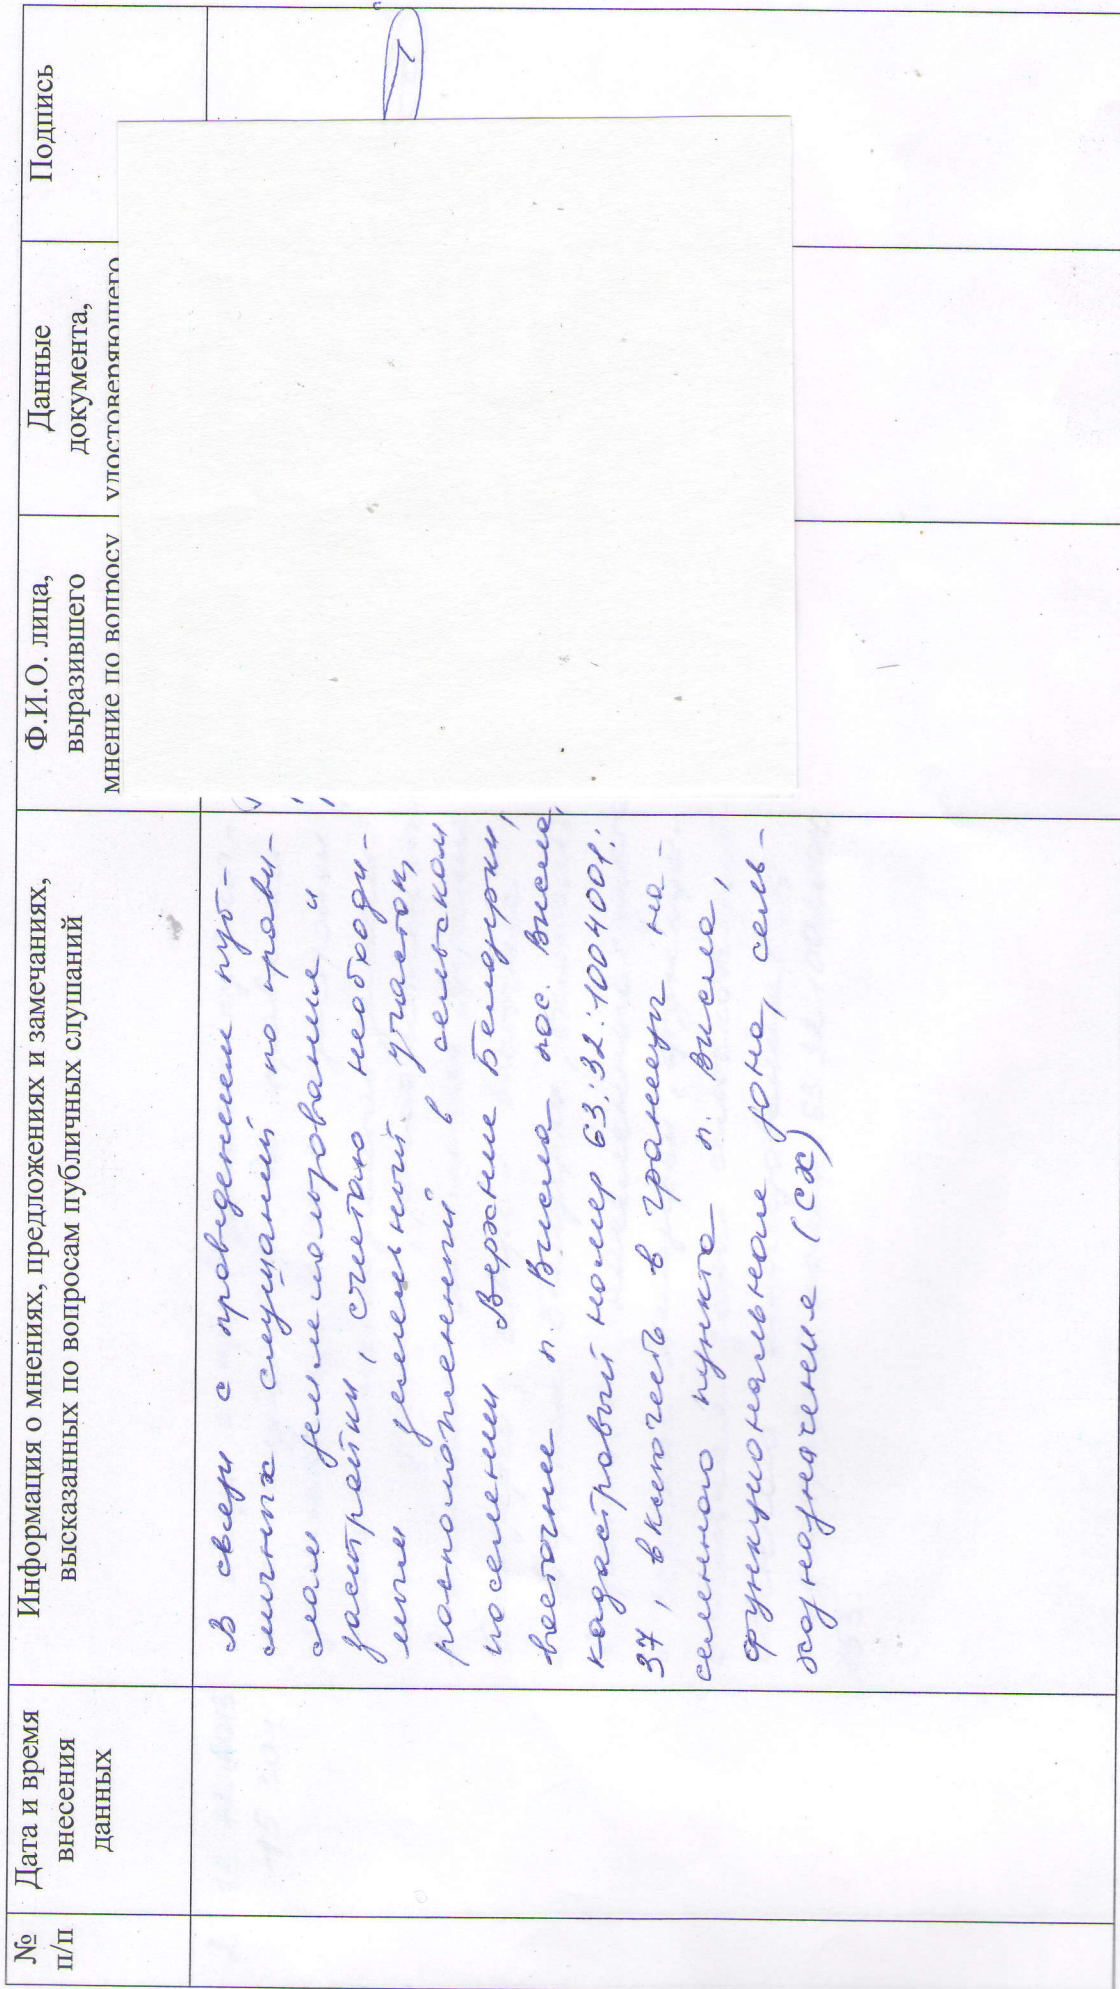 № п/п
Дата и время внесения данных
Информация о мнениях, предложениях и замечаниях, высказанных по вопросам публичных слушаний
Ф.И.О. лица, выразившего мнение по вопросу
Данные документа, удостоверяющего
Подпись
В связи с проведением пуб-
личных слушаний по прави-
лам землепользования и
застройки, считаю необходи-
мым земельный участок,
расположенный в сельском
поселении Верхние Белозерки,
восточнее п. Висла пос. Висла,
кадастровый номер 63:32:1004001:
37, включить в границы на-
селенного пункта п. Висла,
функциональное зона, сель-
хозназначение (сх)